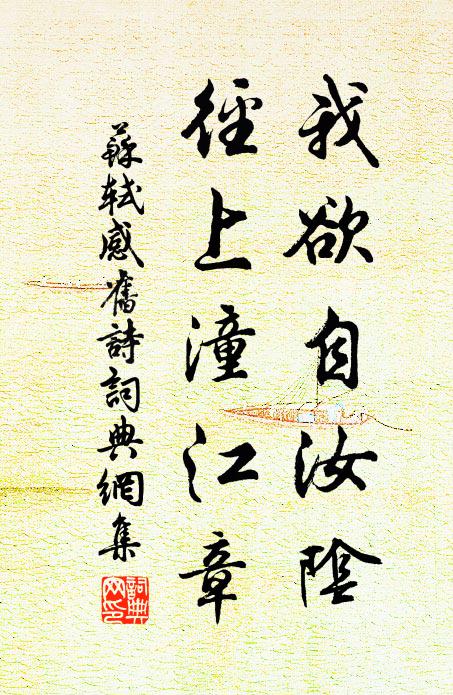 我欲自汝陰
徑上潼江章
蘇軾感舊詩詞典網集
詞典網印